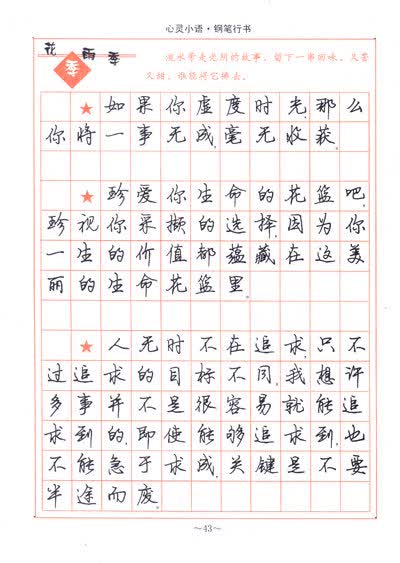 心灵小语·钢笔行书
花 雨季
季
流水带走光阴的故事，留下一串回味，又苦
又甜，谁能将它拂去。
★如果你虚度时光，那么
你将一事无成，毫无收获。
★珍爱你生命的花篮吧，
珍视你采撷的选择，因为你
一生的价值都蕴藏在这美
丽的生命花篮里。
★人无时不在追求，只不
过追求的目标不同，我想许
多事并不是很容易就能追
求到的，即使能够追求到，也
不能急于求成，关键是不要
半途而废。
～43～